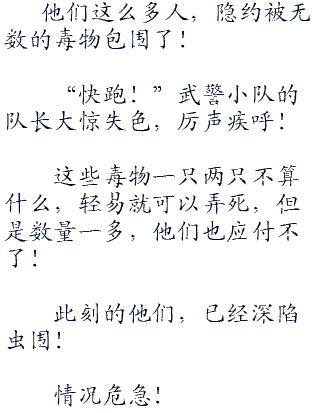 他们这么多人，隐约被无
数的毒物包围了！
“快跑！”武警小队的
队长大惊失色，厉声疾呼！
这些毒物一只两只不算
什么，轻易就可以弄死，但
是数量一多，他们也应付不
了！
此刻的他们，已经深陷
虫围！
情况危急！